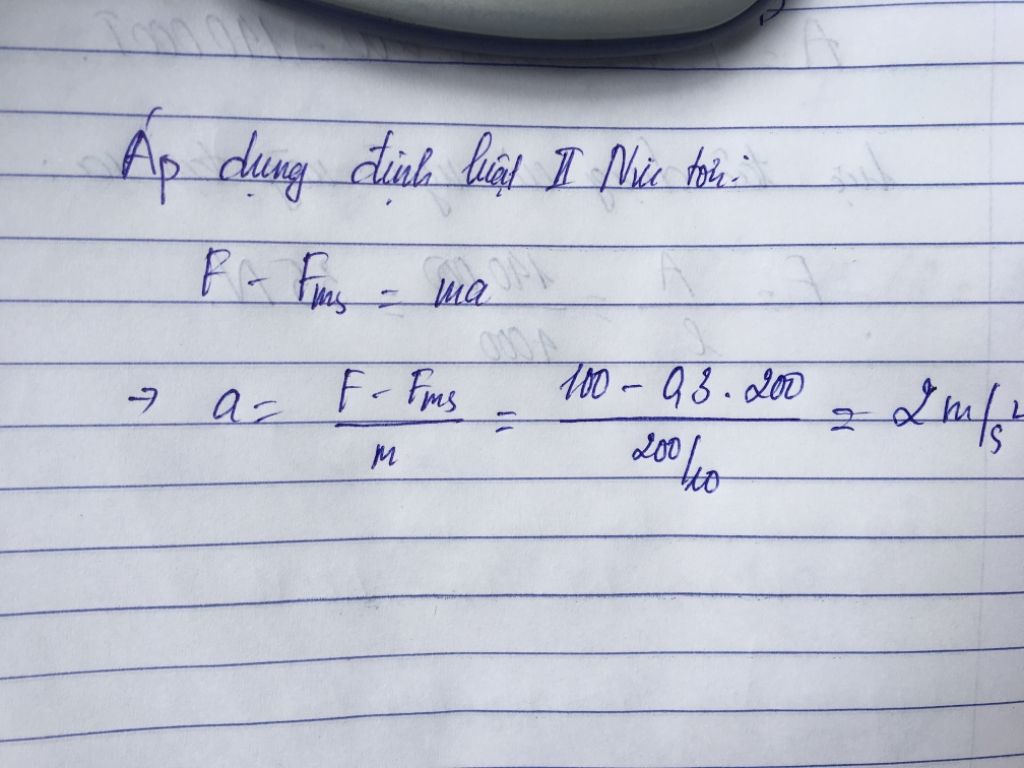 Áp dụng định luật II Niu tơn:
F - Fms = ma
→ a = F - Fms / m = 100 - 0,3 . 200 / 200/10 = 2 m/s²